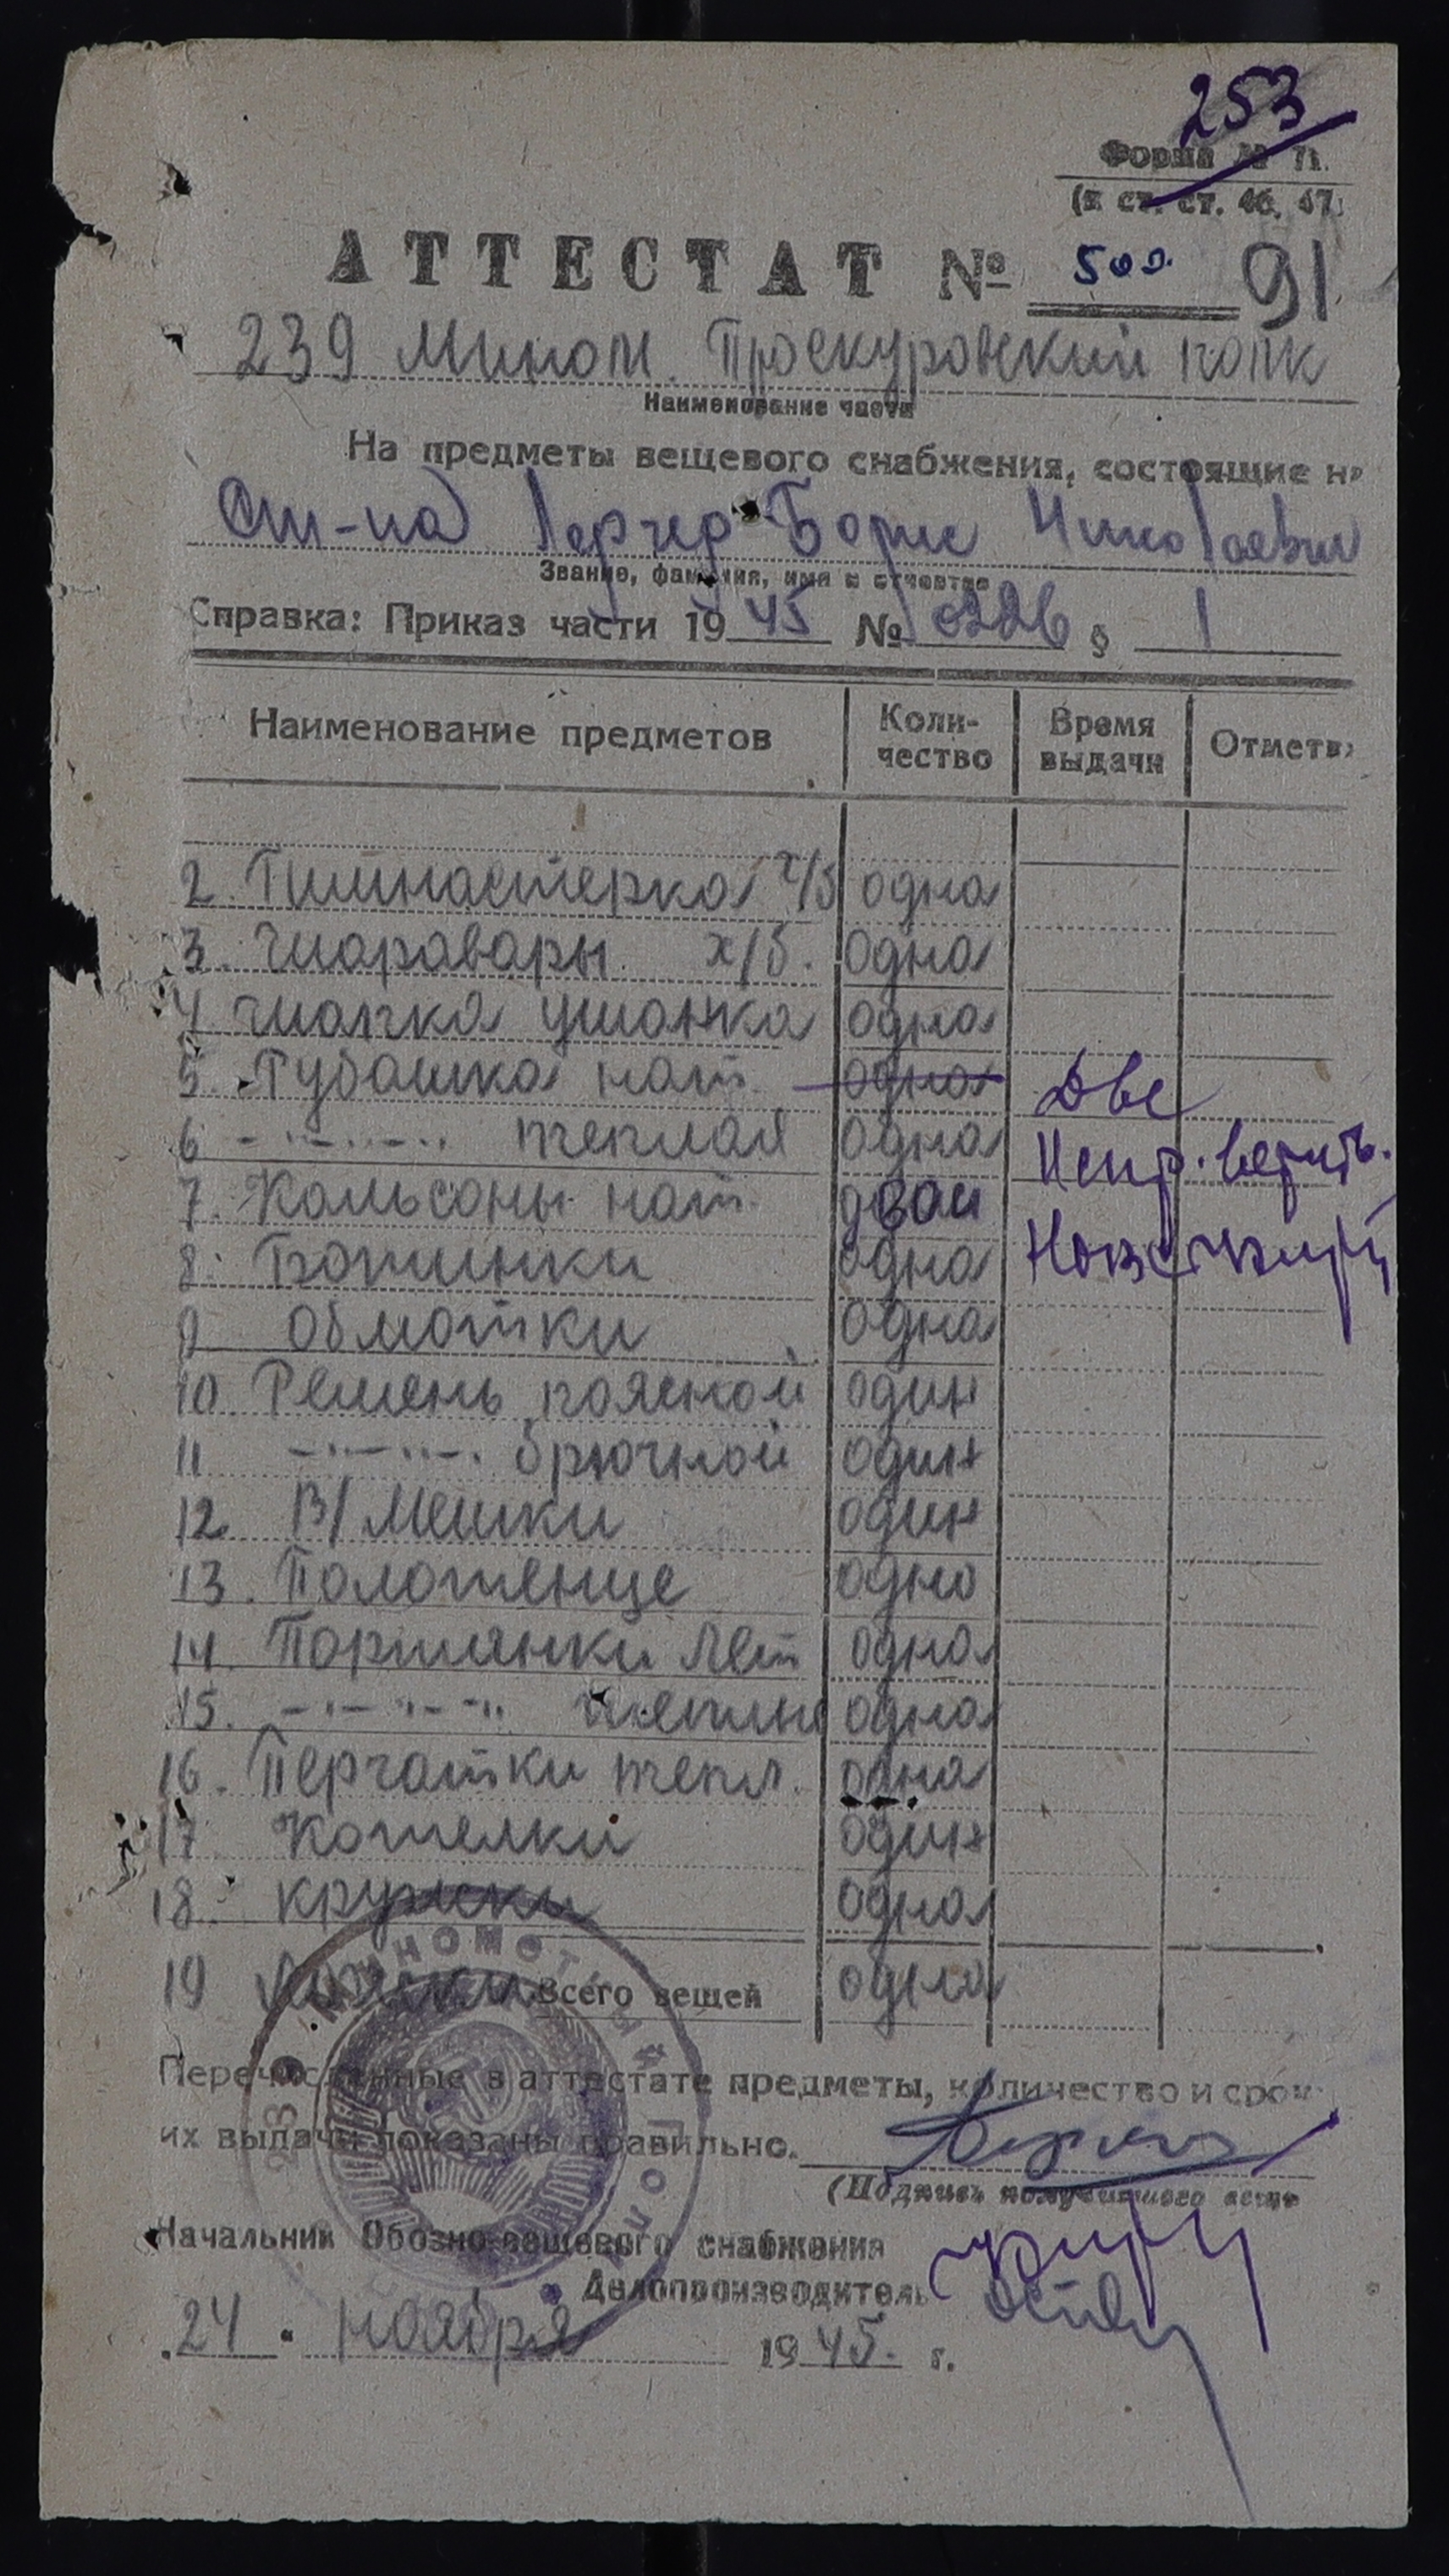 253
Форма № 71.
(к ст. ст. 46, 47)
АТТЕСТАТ № 500. 91
239 Мином. Проскуровский полк
Наименование части
На предметы вещевого снабжения, состоящие н
Ст-на Борис Николаевич
Звание, фамилия, имя и отчество
Справка: Приказ части 1945 № 0226 § 1
Наименование предметов Коли-чество Время выдачи Отметк
2. Гимнастерка х/б одна
3. Шаравары х/б. одна
4 Шапка ушанка одна
5. Рубашка нат. одна Две
6 -"-"-"- теплая одна Испр. верить.
7. Кальсоны нат. двои
8. Ботинки одна
9 Обмотки одна
10. Ремень поясной один
11 -"-"-"- брючной один
12. В/Мешки один
13. Полотенце одно
14. Портянки лет одна
15. -"-"-"- теплые одна
16. Перчатки тепл. одна
17 Котелки один
18. кружки одна
19 ложки Всего вещей одна
Перечисленные в аттестате предметы, количество и срок
их выдачи показаны правильно.
(Подпись получившего вещи
Начальник Обозно-вещевого снабжения
Делопроизводитель
24. ноября 1945. г.